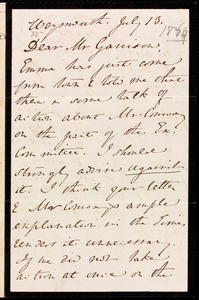 Weymouth July 13.
Dear Mr Garrison,
Emma has just come
from town & told me that
there is some talk of
action about Mr Conway
on the part of the Ex.
Committee. I should
strongly advise against
it. I think your letter
& Mr Conway's ample
explanation in the Times
renders it unnecessary.
If we did not take
action at once on the